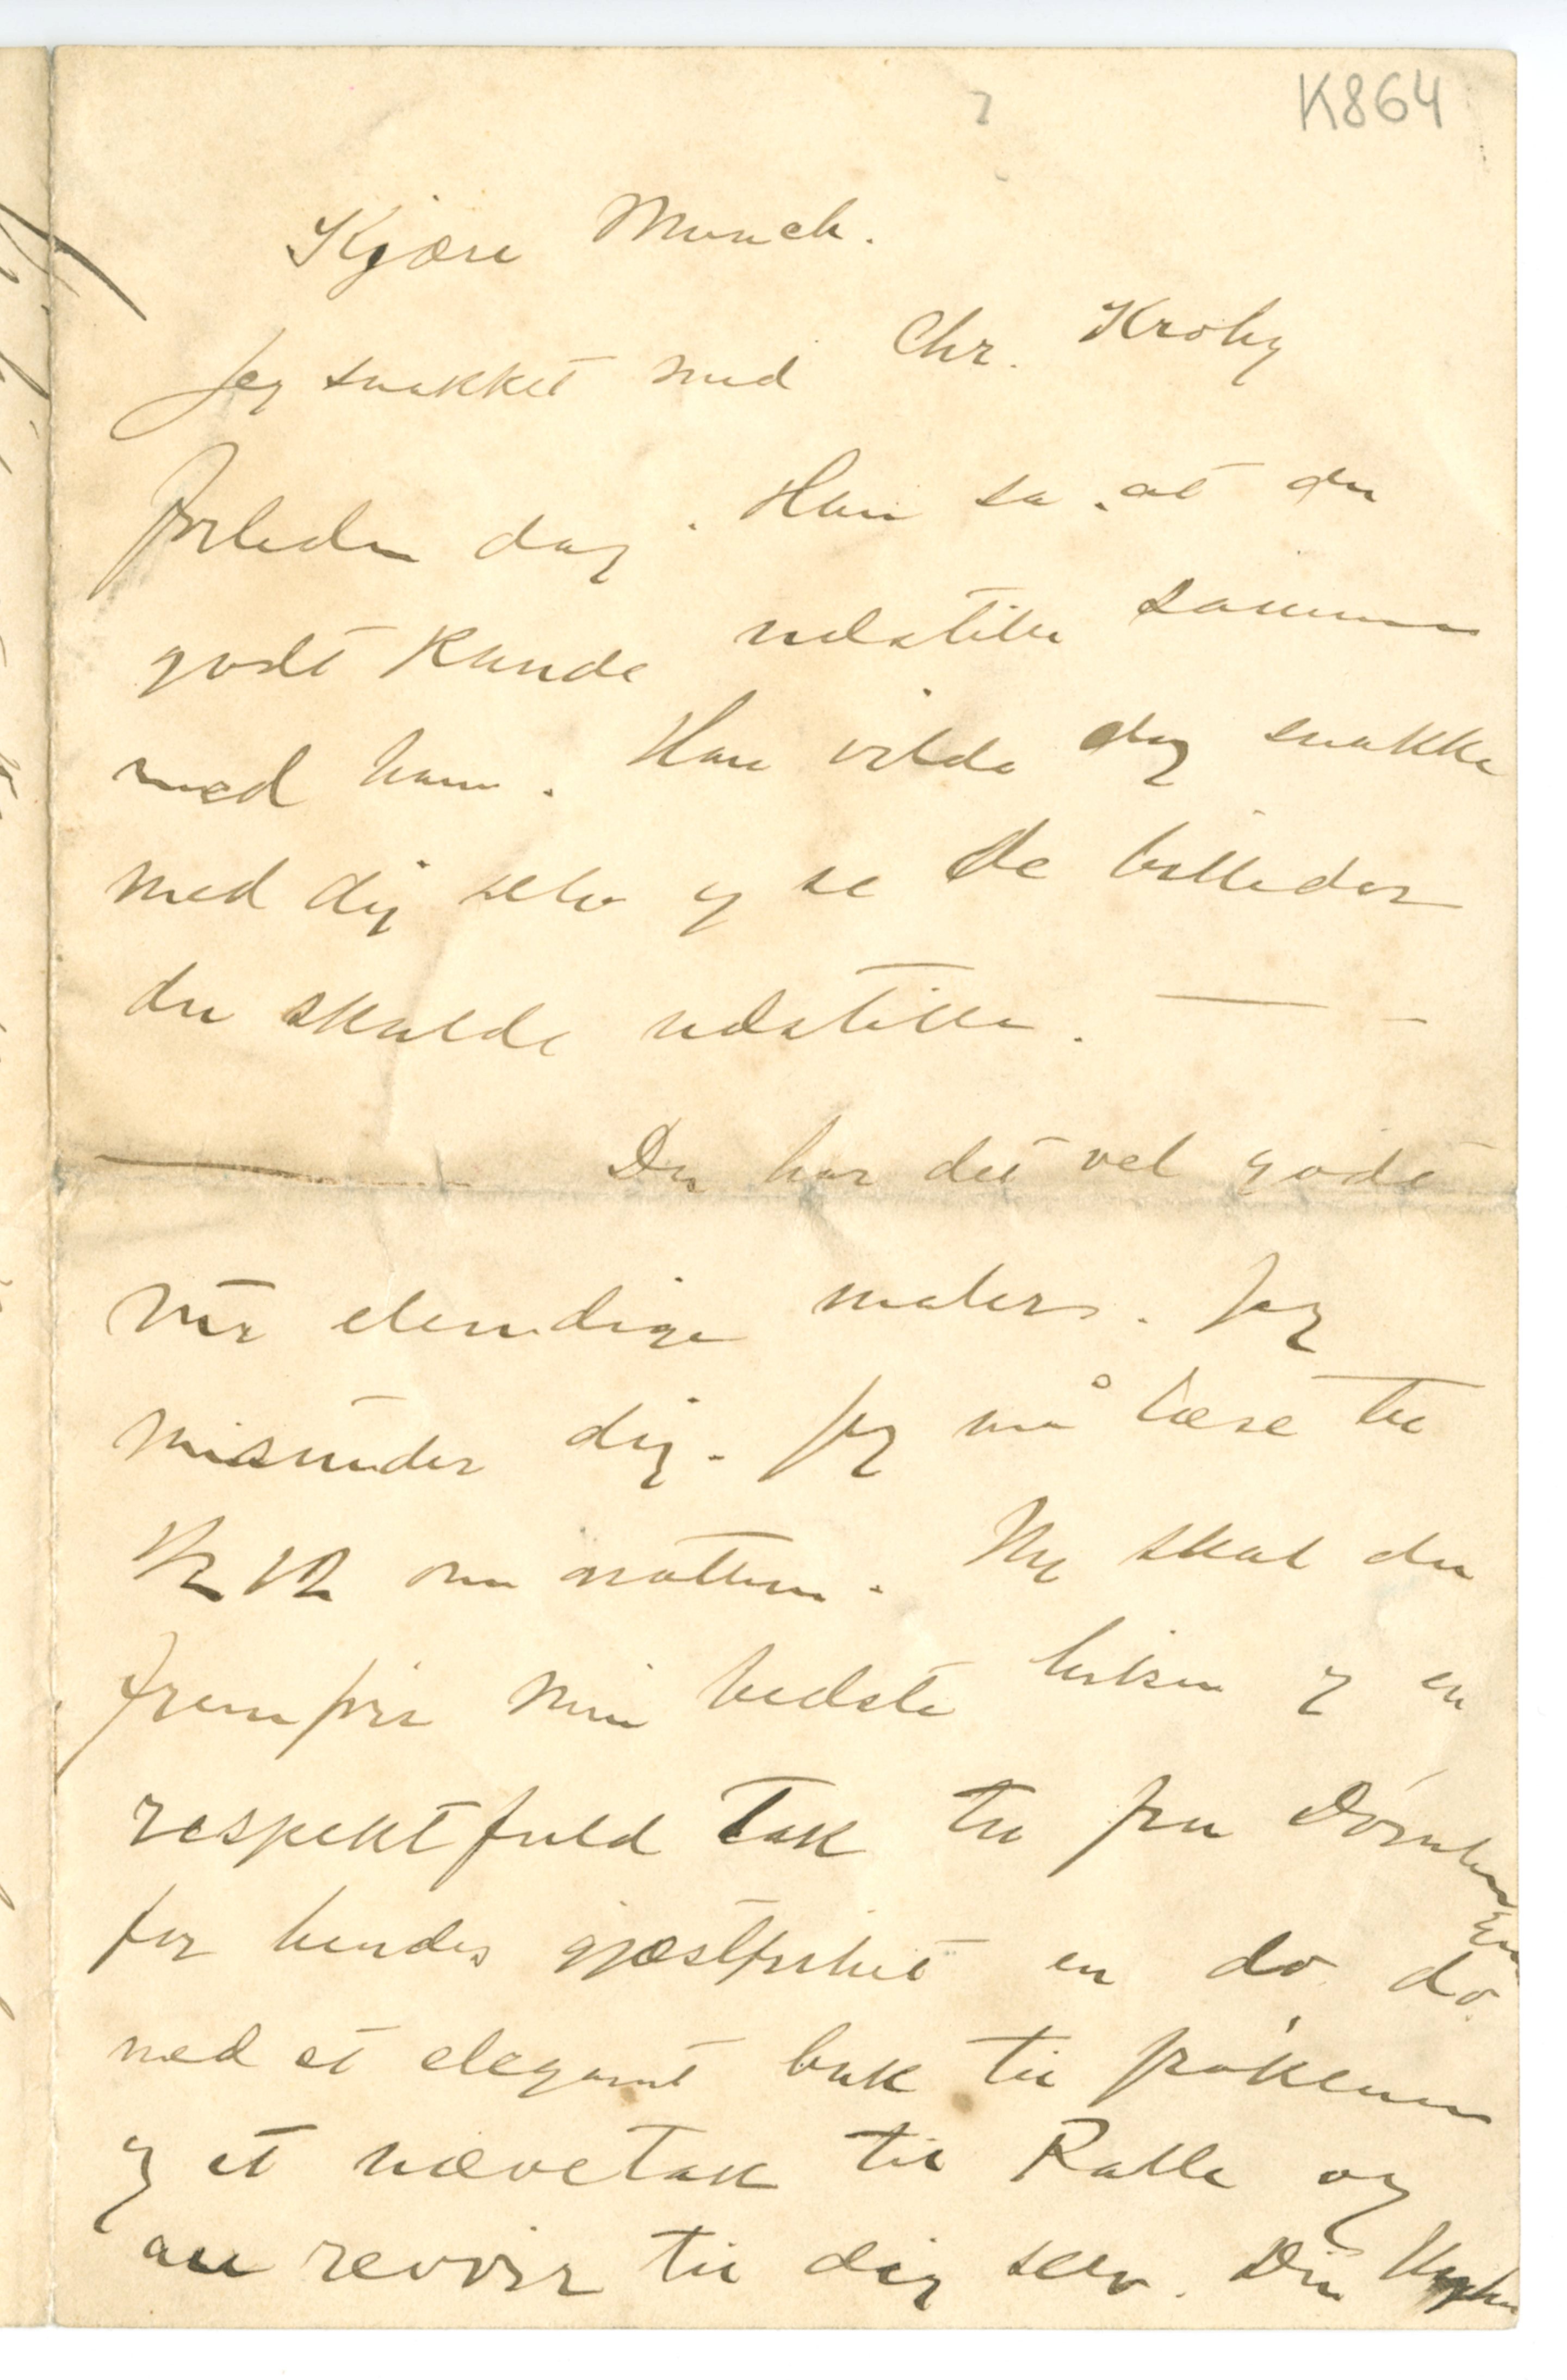 K864
Kjære Munch.
Jeg snakket med Chr. Krohg
forleden dag. Han sa, at du
godt kunde udstille sammen
med ham. Han vilde dog snakke
med dig selv og se de billeder
du skulde udstille. — –
— Du har det vel godt
når elendige maler. Jeg
misunder dig. Jeg må læse til
½ 12 om natten. Nu skal du
fremføre min bedste hilsen og en
respektfuld Tak til fru
for hendes gjæstfrihet en do do
med et elegant buk til frøkenen
og et nævetak til Kalle og
au revoir til dig selv. Din